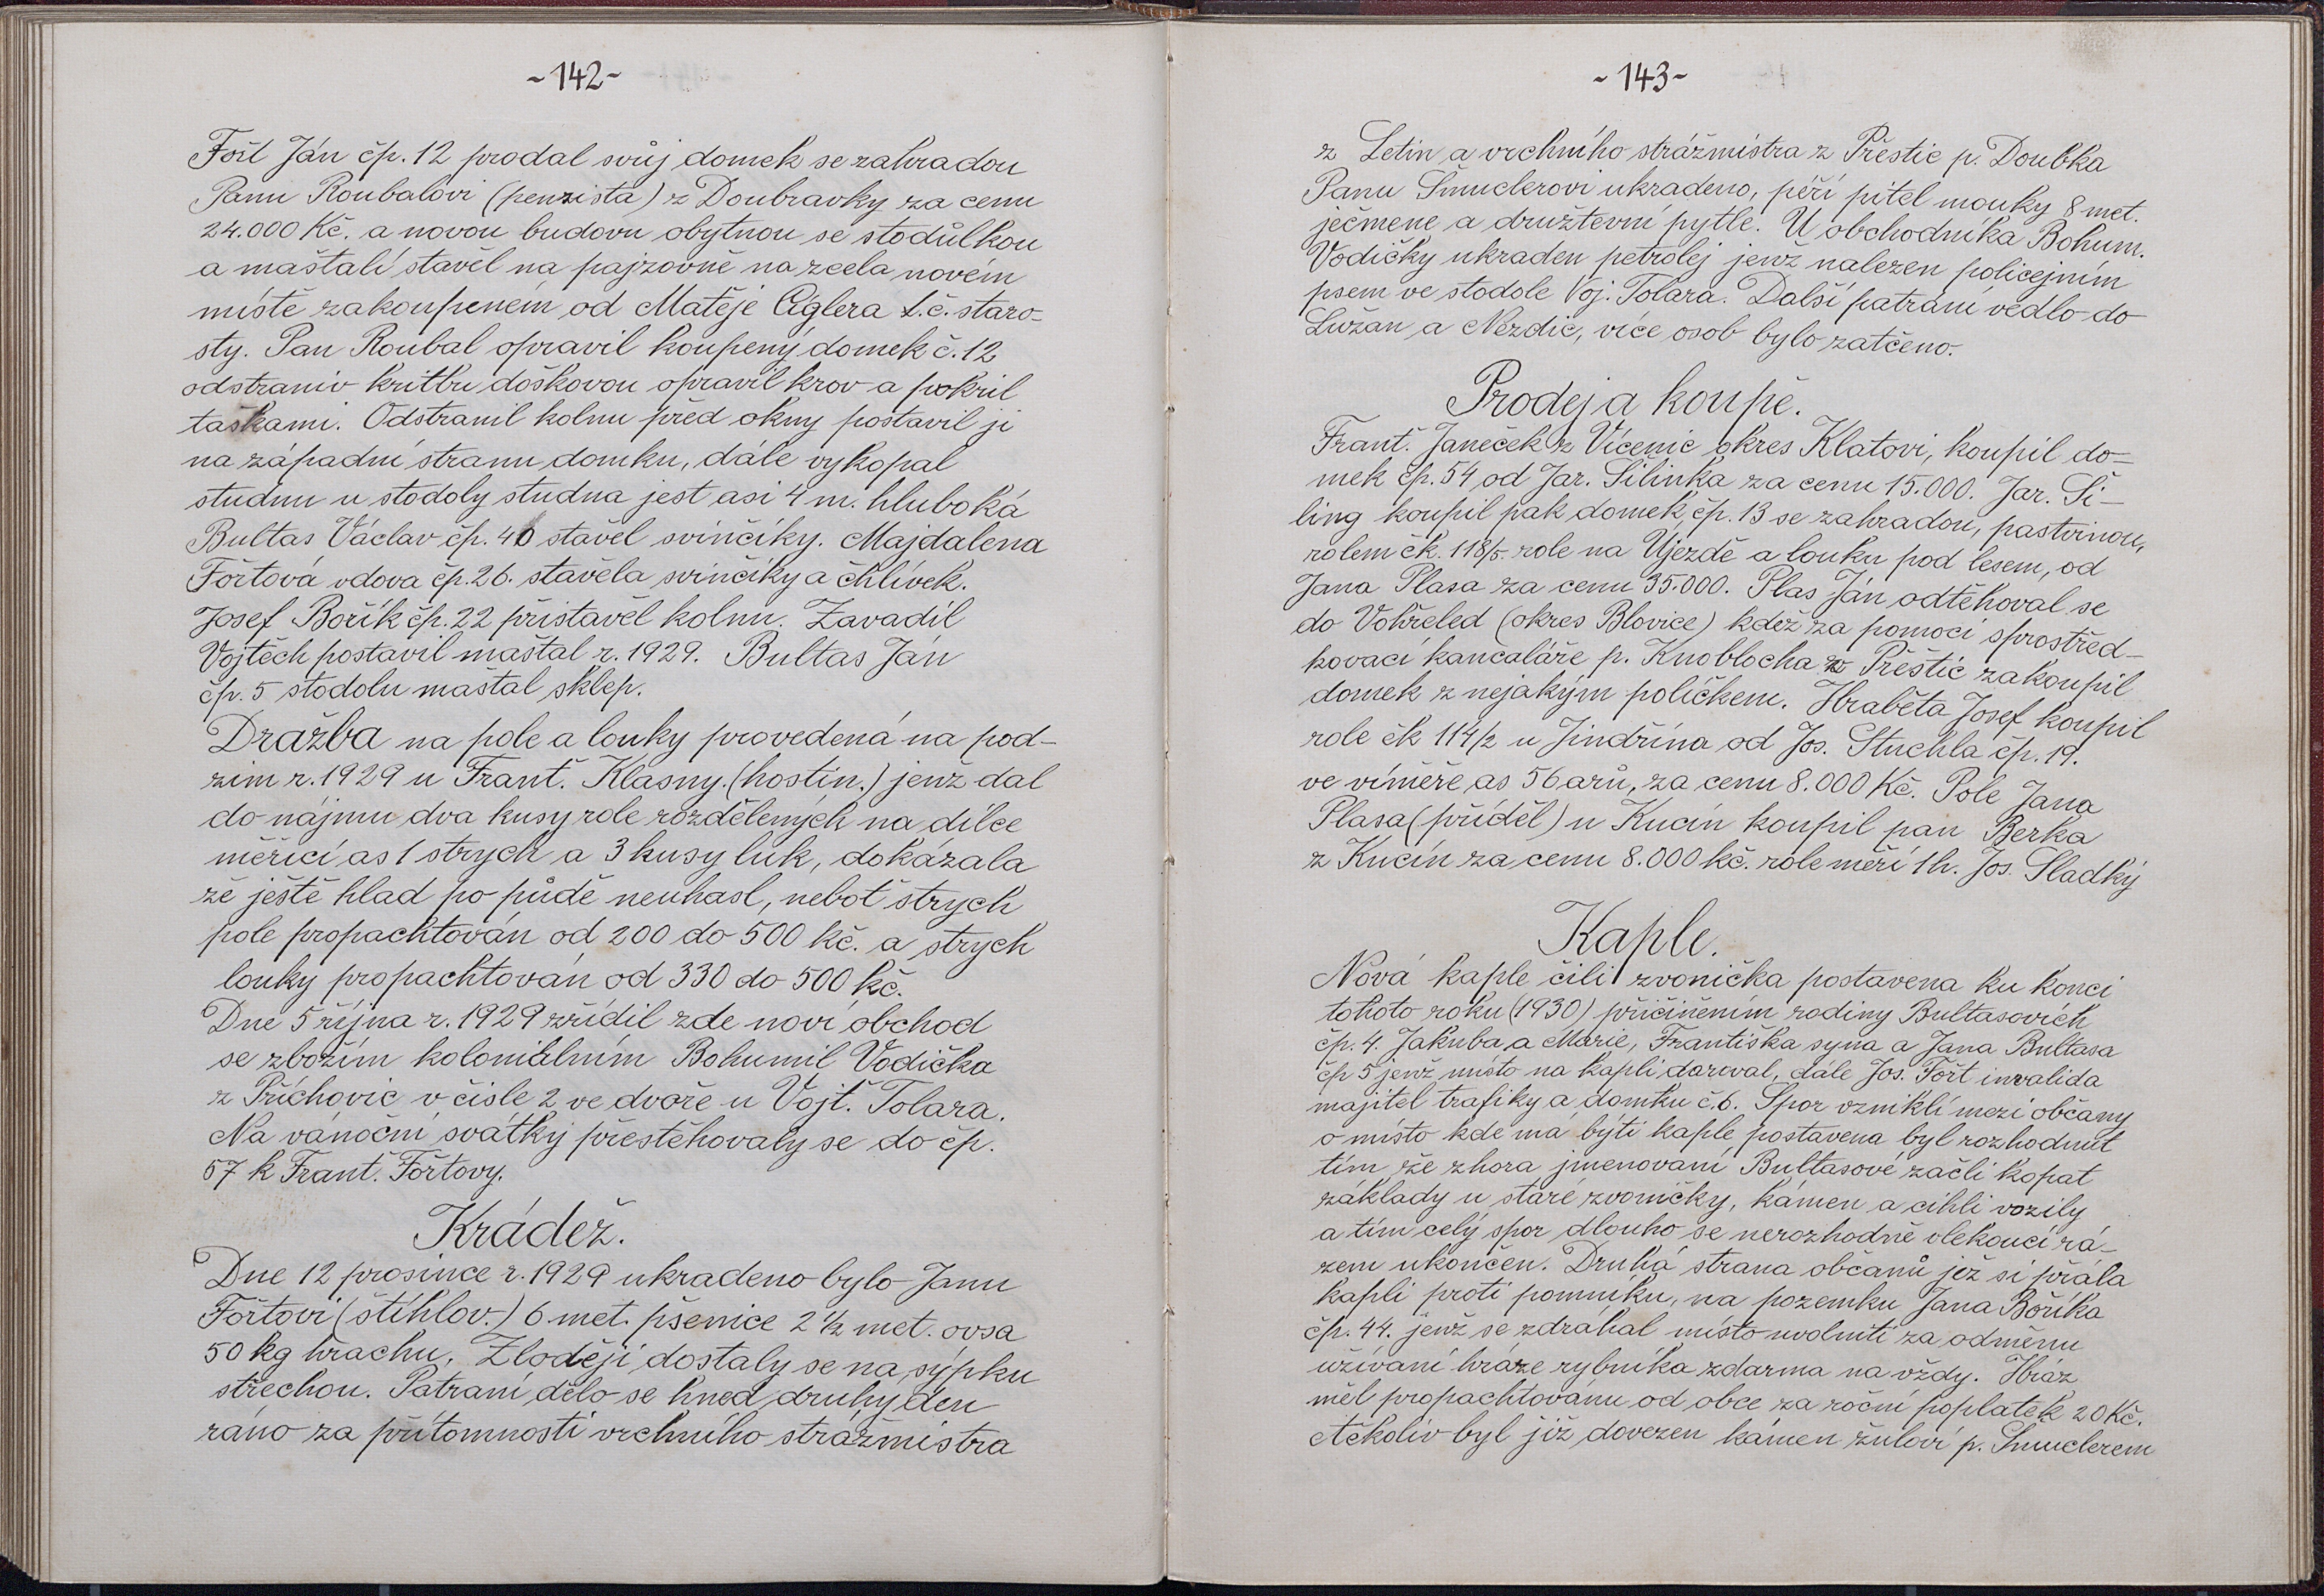 ~142~
Fořt Ján čp. 12 prodal svůj domek se zahradou
Panu Roubalovi (penzista) z Doubravky za cenu
24.000 Kč. a novou budovu obytnou se stodůlkou
a maštalí stavěl na pajzovně na zcela novém
místě zakoupeném od Matěje Ciglera t.č. staro-
sty. Pan Roubal opravil koupený domek č. 12
odstraniv kritbu doškovou opravil krov a pokril
taškami. Odstranil kolnu před okny postavil ji
na západní stranu domku, dále vykopal
studnu u stodoly studna jest asi 4 m. hluboká
Bultas Václav čp. 40 stavěl svinčíky. Majdalena
Fořtová vdova čp. 26. stavěla svinčíky a chlívek.
Josef Bořík čp. 22 přistavěl kolnu. Zavadil
Vojtěch postavil maštal r. 1929. Bultas Ján
čp. 5 stodolu maštal sklep.
Dražba na pole a louky provedená na pod-
zim r. 1929 u Frant. Klasny. (hostin.) jenž dal
do nájmu dva kusy role rozdělených na dílce
měřící as 1 strych a 3 kusy luk, dokázala
že ještě hlad po půdě neuhasl, neboť strych
pole propachtován od 200 do 500 kč. a strych
louky propachtován od 330 do 500 kč.
Dne 5 října r. 1929 zřídil zde noví obchod
se zbožím koloniálním Bohumil Vodička
z Příchovic v čísle 2 ve dvoře u Vojt. Tolara.
Na vánoční svátky přestěhovaly se do čp.
57 k Frant. Fořtovy.
Krádež.
Dne 12 prosince r. 1929 ukradeno bylo Janu
Fořtovi (štíhlov.) 6 met. pšenice 2 1/2 met. ovsa
50 kg hrachu. Zloději dostaly se na sýpku
střechou. Patraní dělo se hned druhy den
ráno za přítomnosti vrchního strážmistra
~143~
z Letin a vrchního strážmistra z Přestic p. Doubka
Panu Šmuclerovi ukradeno, péří pitel mouky 8 met.
ječmene a družtevní pytle. U obchodníka Bohum.
Vodičky ukraden petrolej jenž nalezen policejním
psem ve stodole Voj. Tolara. Další patraní vedlo do
Lužan a Nezdic, více osob bylo zatčeno.
Prodej a koupě.
Frant. Janeček z Vícenic okres Klatovi, koupil do-
mek čp. 54 od Jar. Šilinka za cenu 15.000. Jar. Ši-
ling koupil pak domek čp. 13 se zahradou, pastvinou,
rolem čk. 118/5. role na Újezdě a louku pod lesem, od
Jana Plasa za cenu 35.000. Plas Ján odtěhoval se
do Vohřeled (okres Blovice) kdež za pomoci sprostřed-
kovací kančaláře p. Knoblocha z Přeštic zakoupil
domek z nejakým políčkem. Hraběta Josef koupil
role čk 114/2 u Jindřína od Jos. Stuchla čp. 19.
ve víměře as 56 arů, za cenu 8.000 Kč. Pole Jana
Plasa (příděl) u Kucín koupil pan Berka
z Kucín za cenu 8.000 kč. role měří 1 h. Jos. Sladký
Kaple.
Nová kaple čili zvonička postavena ku konci
tohoto roku (1930) přičiněním rodiny Bultasovích
čp. 4. Jakuba a Marie, Františka syna a Jana Bultasa
čp 5 jenž místo na kapli daroval, dále Jos. Fořt invalida
majitel trafiky a domku č. 6. Spor vzniklí mezi občany
o místo kde má býti kaple postavena byl rozhodnut
tím že zhora jmenovaní Bultasové začli kopat
základy u staré zvoničky, kámen a cihli vozily
a tím celý spor dlouho se nerozhodně vlekoucí rá-
zem ukončen. Druhá strana občanů jež si přála
kapli proti pomníku, na pozemku Jana Boříka
čp. 44. jenž se zdráhal místo uvolniti za odměnu
užívaní hráze rybníka zdarma na vždy. Hráz
měl propachtovanu od obce za roční poplatek 20 Kč.
Ačkoliv byl již dovezen kámen žuloví p. Šmuclerem